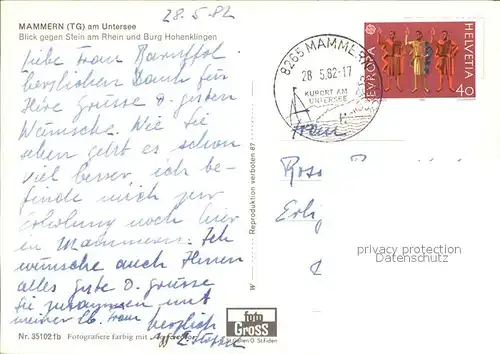 28.5.82
MAMMERN (TG) am Untersee
Blick gegen Stein am Rhein und Burg Hohenklingen
Liebe Frau
herzlichen Dank für
Ihre Grüsse & guten
Wünsche. Wie Sie
sehen geht es schon
viel besser, ich be-
finde mich zur
Erholung noch hier
in Mammern. Ich
wünsche auch Ihnen
alles gute & grüsse
Sie zusammen mit
meiner lb. Frau
herzlich
Nr. 35102 fb Fotografiere farbig mit
W Reproduktion verboten 87
foto
Gross
St.Gallen O St.Fiden
8265 MAMMERN
28.5.82-17
KURORT AM
UNTERSEE
EUROPA
HELVETIA
40
Frau
Ross
Erli
privacy protection
DATENSCHUTZ